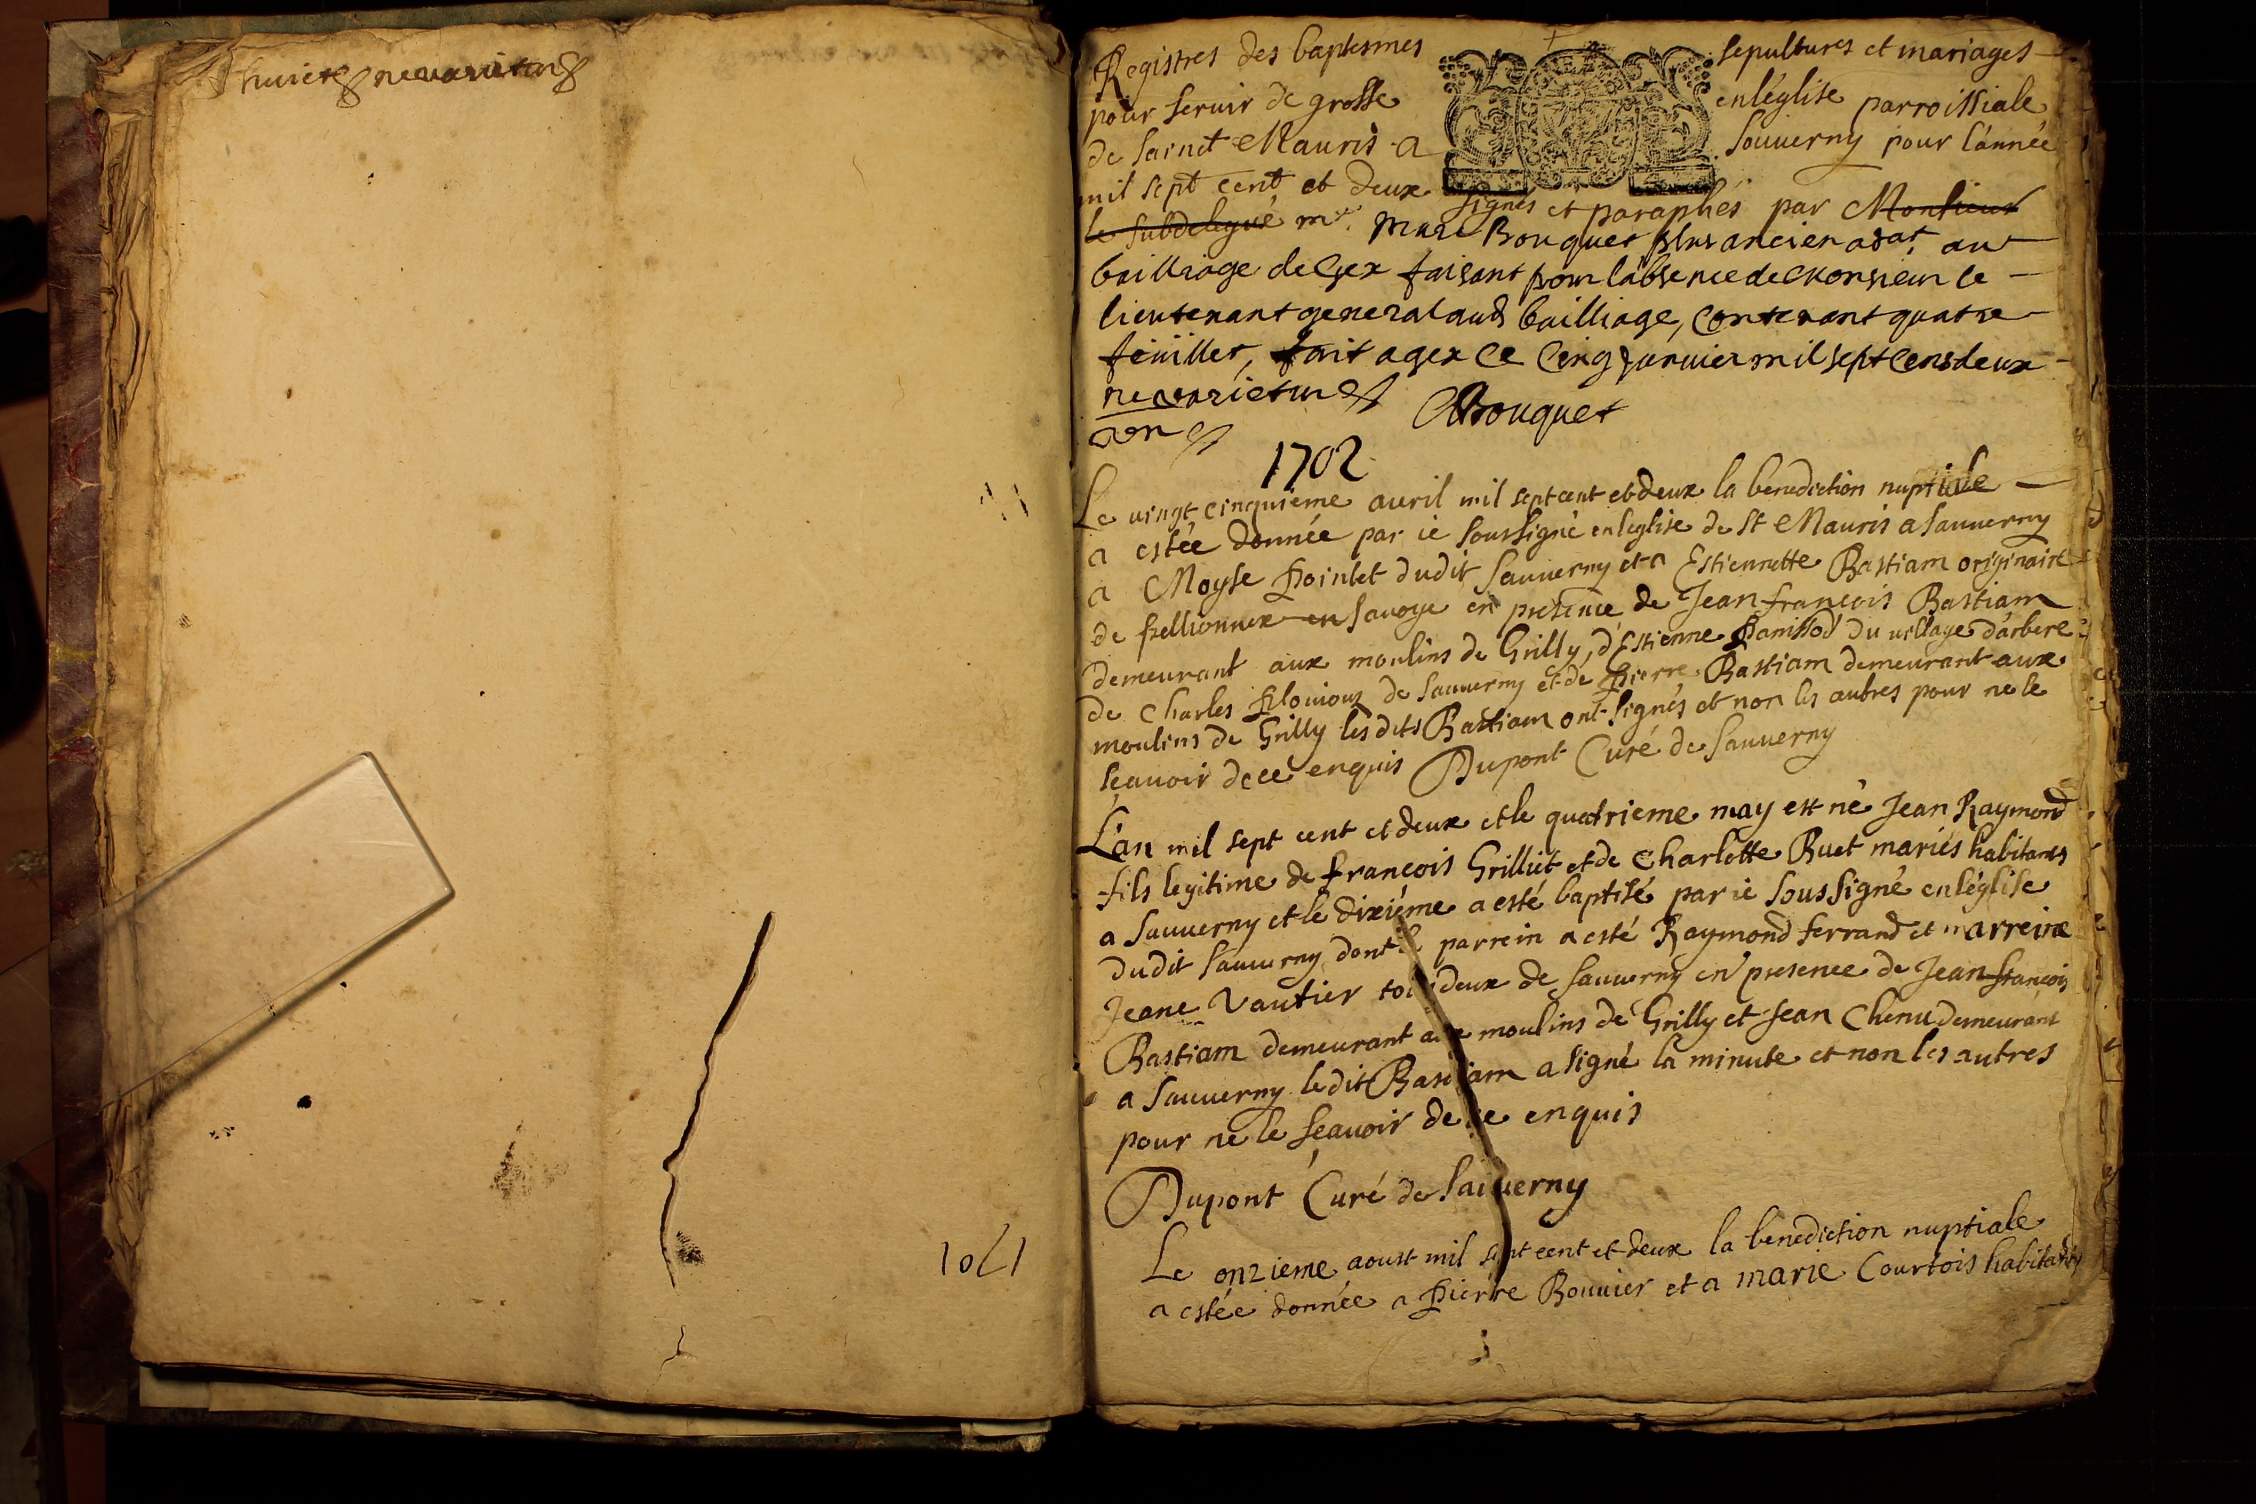 huict ne varietur
1701
Registres des baptesmes sepultures et mariages
pour servir de grosse en l'église parroissiale
de Sainct Mauris a Sauverny pour l'année
mil sept cent et deux signés et paraphés par Monsieur
le subdelegué mr. Marc Bouquet plus ancien advat au
bailliage de Gex faisant pour l'absence de Monsieur le
lieutenant general aud bailliage, contenant quatre
feuillet, fait a gex ce cinq janvier mil sept cens deux
ne varietur
Bouquet
1702
Le vingt cinquieme avril mil sept cent et deux la benediction nuptiale
a estée donnée par ie soussigné en leglise de St Mauris a Sauverny
a Moyse Pointet dudit Sauverny et a Estiennette Bastiam originaire
de Pellionnex en Savoye en presence de Jean françois Bastiam
demeurant aux moulins de Grilly, d'Estienne Panissod du village d'arbere
de Charles de Sauverny et de Pierre Bastiam demeurant aux
moulins de Grilly les dits Bastiam ont signés et non les autres pour ne le
sçavoir de ce enquis Dupont Curé de Sauverny
L'an mil sept cent et deux et le quatrieme may est né Jean Raymond
fils legitime de françois Grilliet et de Charlotte Ruet mariés habitants
a Sauverny et le dixiéme a esté baptisé par ie soussigné en léglise
dudit Sauverny dont le parrein a esté Raymond ferrand et marreine
Jeane Vautier tous deux de Sauverny en presence de Jean françois
Bastiam demeurant aux moulins de Grilly et Jean Chenu demeurant
a Sauverny le dit Bastiam a signé la minute et non les autres
pour ne le sçavoir de ce enquis
Dupont Curé de Sauverny
Le onzieme aoust mil sept cent et deux la benediction nuptiale
a estée donnée a Pierre Bouvier et a marie Courtois habitants